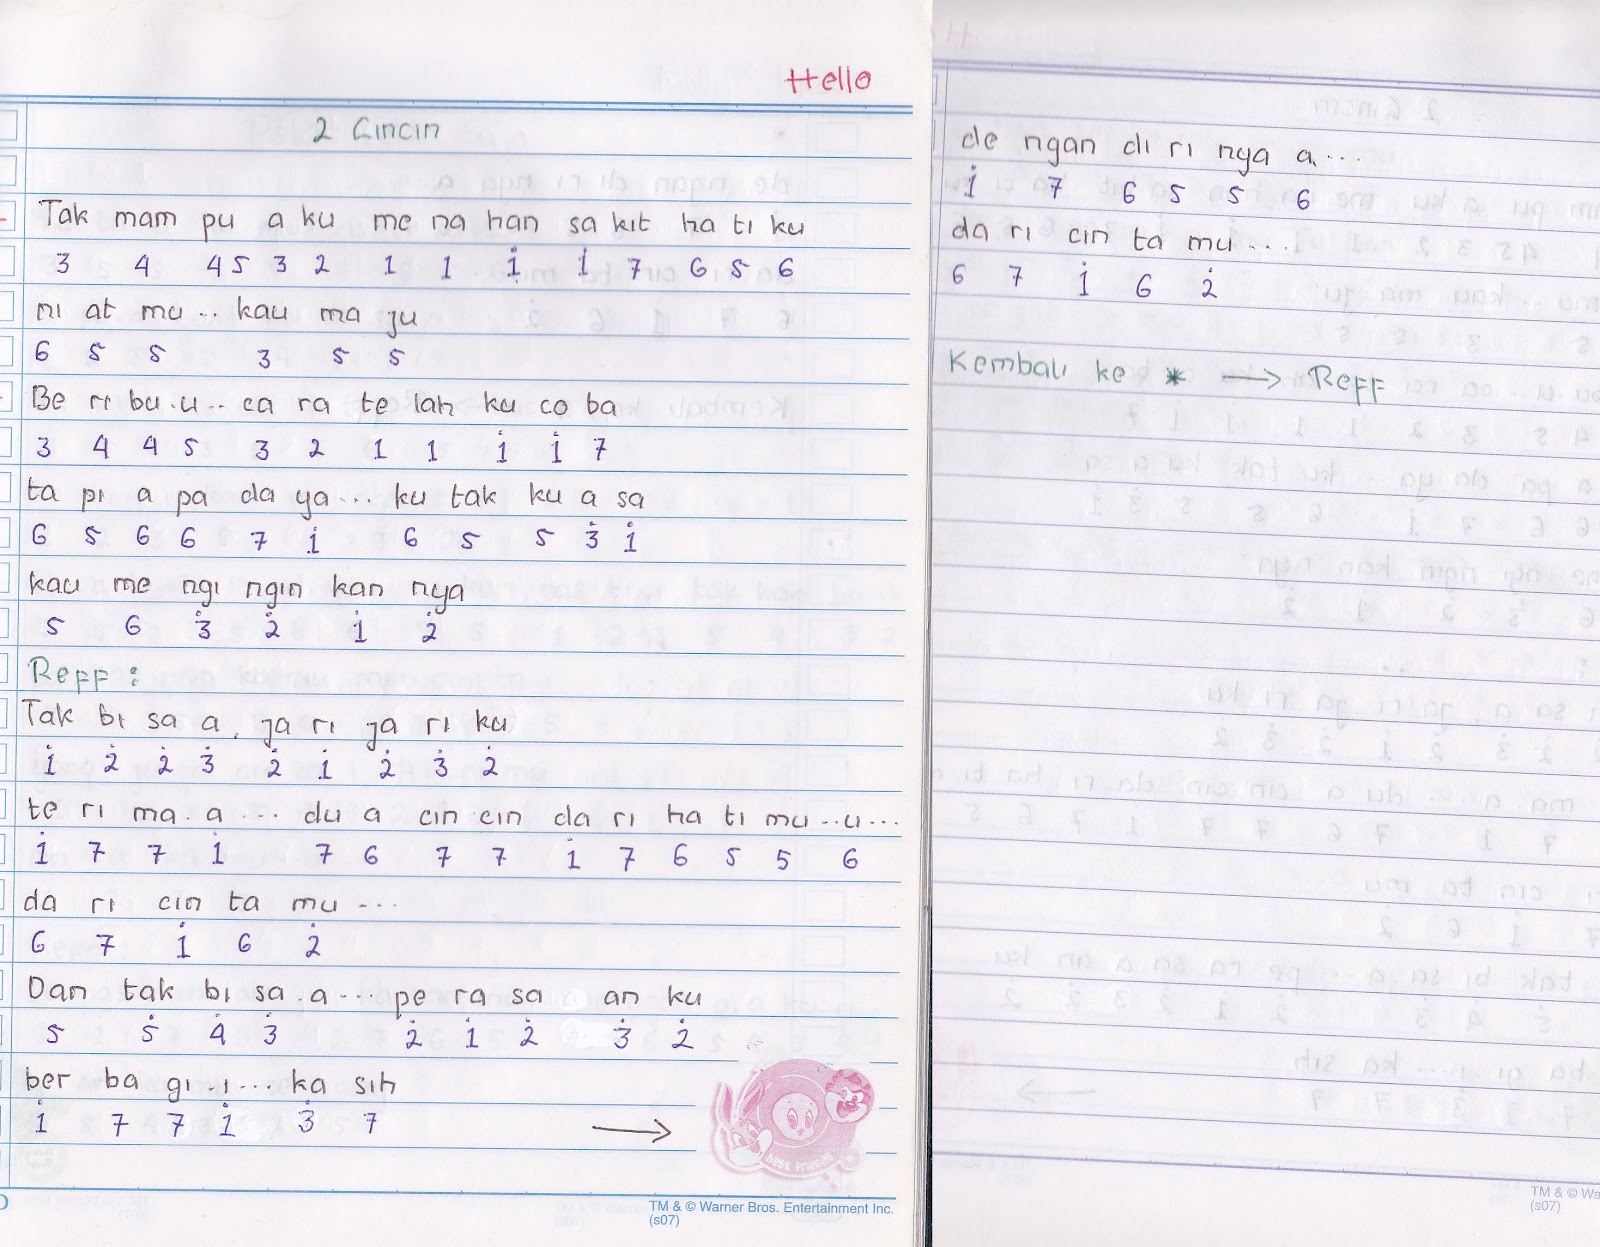 Hello
2 Cincin
Tak mam pu a ku me na han sa kit ha ti ku
3 4 4 5 3 2 1 1 1̇ 1̇ 7 6 5 6
ni at mu .. kau ma ju
6 5 5 3 5 5
Be ri bu . u .. ca ra te lah ku co ba
3 4 4 5 3 2 1 1 1̇ 1̇ 7
ta pi a pa da ya ... ku tak ku a sa
6 5 6 6 7 1̇ 6 5 5 3̇ 1̇
kau me ngi ngin kan nya
5 6 3̇ 2̇ 1̇ 2̇
Reff :
Tak bi sa a , ja ri ja ri ku
1̇ 2̇ 2̇ 3̇ 2̇ 1̇ 2̇ 3̇ 2̇
te ri ma . a ... du a cin cin da ri ha ti mu .. u ...
1̇ 7 7 1̇ 7 6 7 7 1̇ 7 6 5 5 6
da ri cin ta mu ...
6 7 1̇ 6 2̇
Dan tak bi sa . a ... pe ra sa an ku
5 5̇ 4̇ 3̇ 2̇ 1̇ 2̇ 3̇ 2̇
ber ba gi . i ... ka sih
1̇ 7 7 1̇ 3̇ 7
→
best friends
TM & © Warner Bros. Entertainment Inc.
(s07)
de ngan di ri nya a ...
1̇ 7 6 5 5 6
da ri cin ta mu ...
6 7 1̇ 6 2̇
Kembali ke * → Reff
TM & © Wa
(s07)